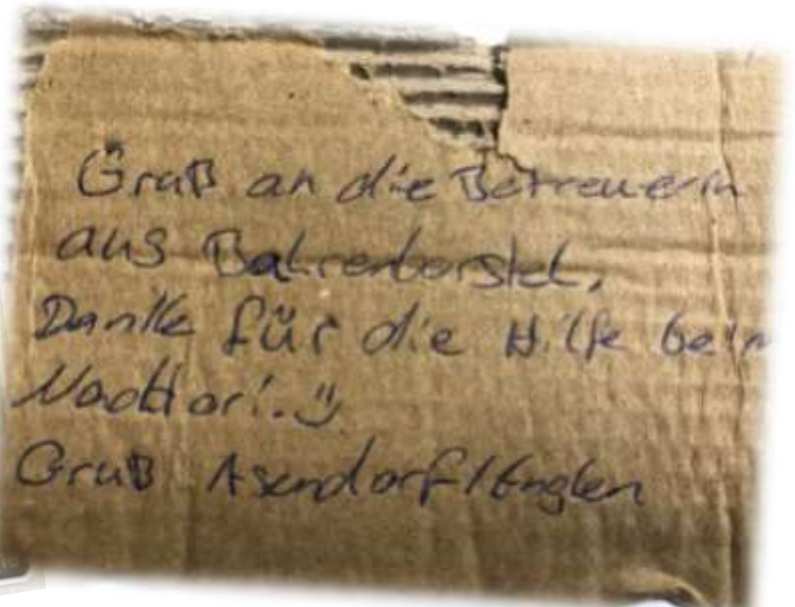 Gruß an die Betreuerin
aus Bahrenborstel.
Danke für die Hilfe beim
Nachtori. :)
Gruß Asendorf/Englen